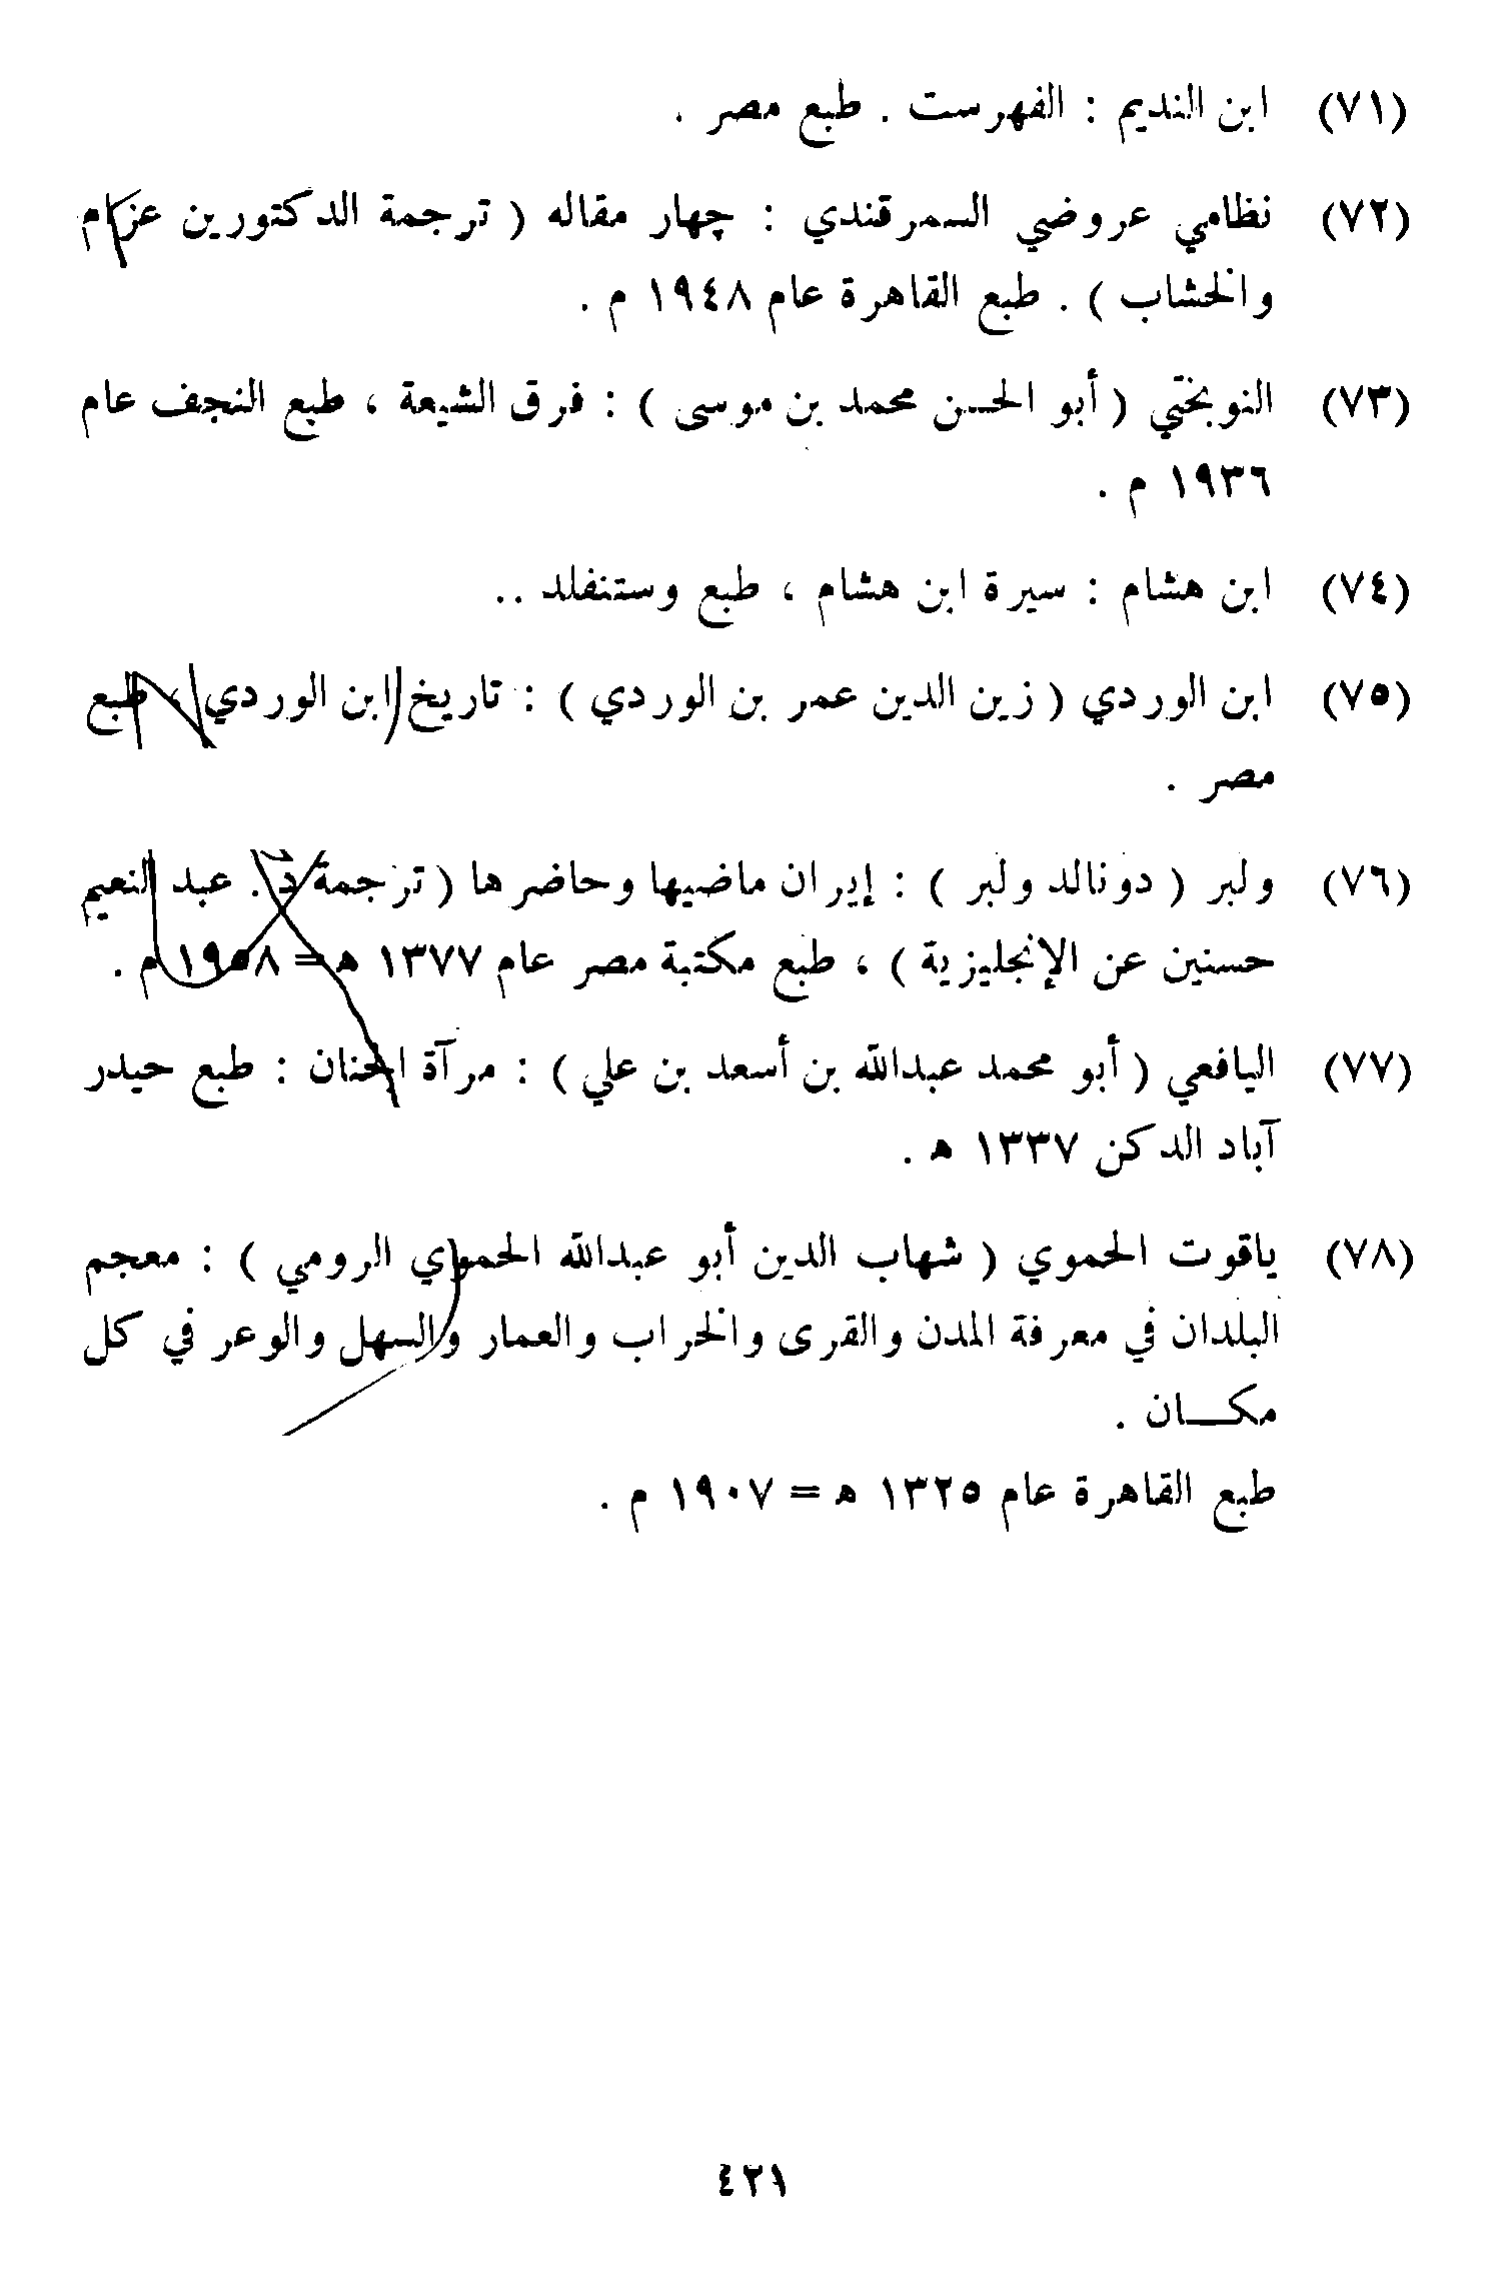 (٧١) ابن النديم : الفهرست . طبع مصر .
(٧٢) نظامي عروضي السمرقندي : چهار مقاله ( ترجمة الدكتورين عزام
والخشاب ) . طبع القاهرة عام ١٩٤٨ م .
(٧٣) النوبختي ( أبو الحسن محمد بن موسى ) : فرق الشيعة ، طبع النجف عام
١٩٣٦ م .
(٧٤) ابن هشام : سيرة ابن هشام ، طبع وستنفلد ..
(٧٥) ابن الوردي ( زين الدين عمر بن الوردي ) : تاريخ ابن الوردي ، طبع
مصر .
(٧٦) ولبر ( دونالد ولبر ) : إيران ماضيها وحاضرها ( ترجمة د . عبد النعيم
حسنين عن الإنجليزية ) ، طبع مكتبة مصر عام ١٣٧٧ ه = ١٩٥٨ م .
(٧٧) اليافعي ( أبو محمد عبدالله بن أسعد بن علي ) : مرآة الجنان : طبع حيدر
آباد الدكن ١٣٣٧ ه .
(٧٨) ياقوت الحموي ( شهاب الدين أبو عبدالله الحموي الرومي ) : معجم
البلدان في معرفة المدن والقرى والخراب والعمار والسهل والوعر في كل
مكـــان .
طبع القاهرة عام ١٣٢٥ ه = ١٩٠٧ م .
٤٢١